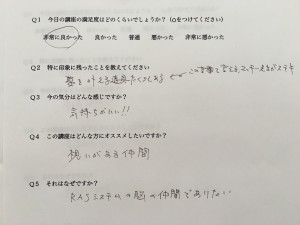 Q1 今日の講座の満足度はどのくらいでしょうか? (○をつけてください)
非常に良かった 良かった 普通 悪かった 非常に悪かった
Q2 特に印象に残ったことを教えてください
夢を叶える道具たくさんある
Q3 今の気分はどんな感じですか?
気持ちがいい!!
Q4 この講座はどんな方にオススメしたいですか?
想いがある仲間
Q5 それはなぜですか?
RASシステムの脳の仲間でありたい